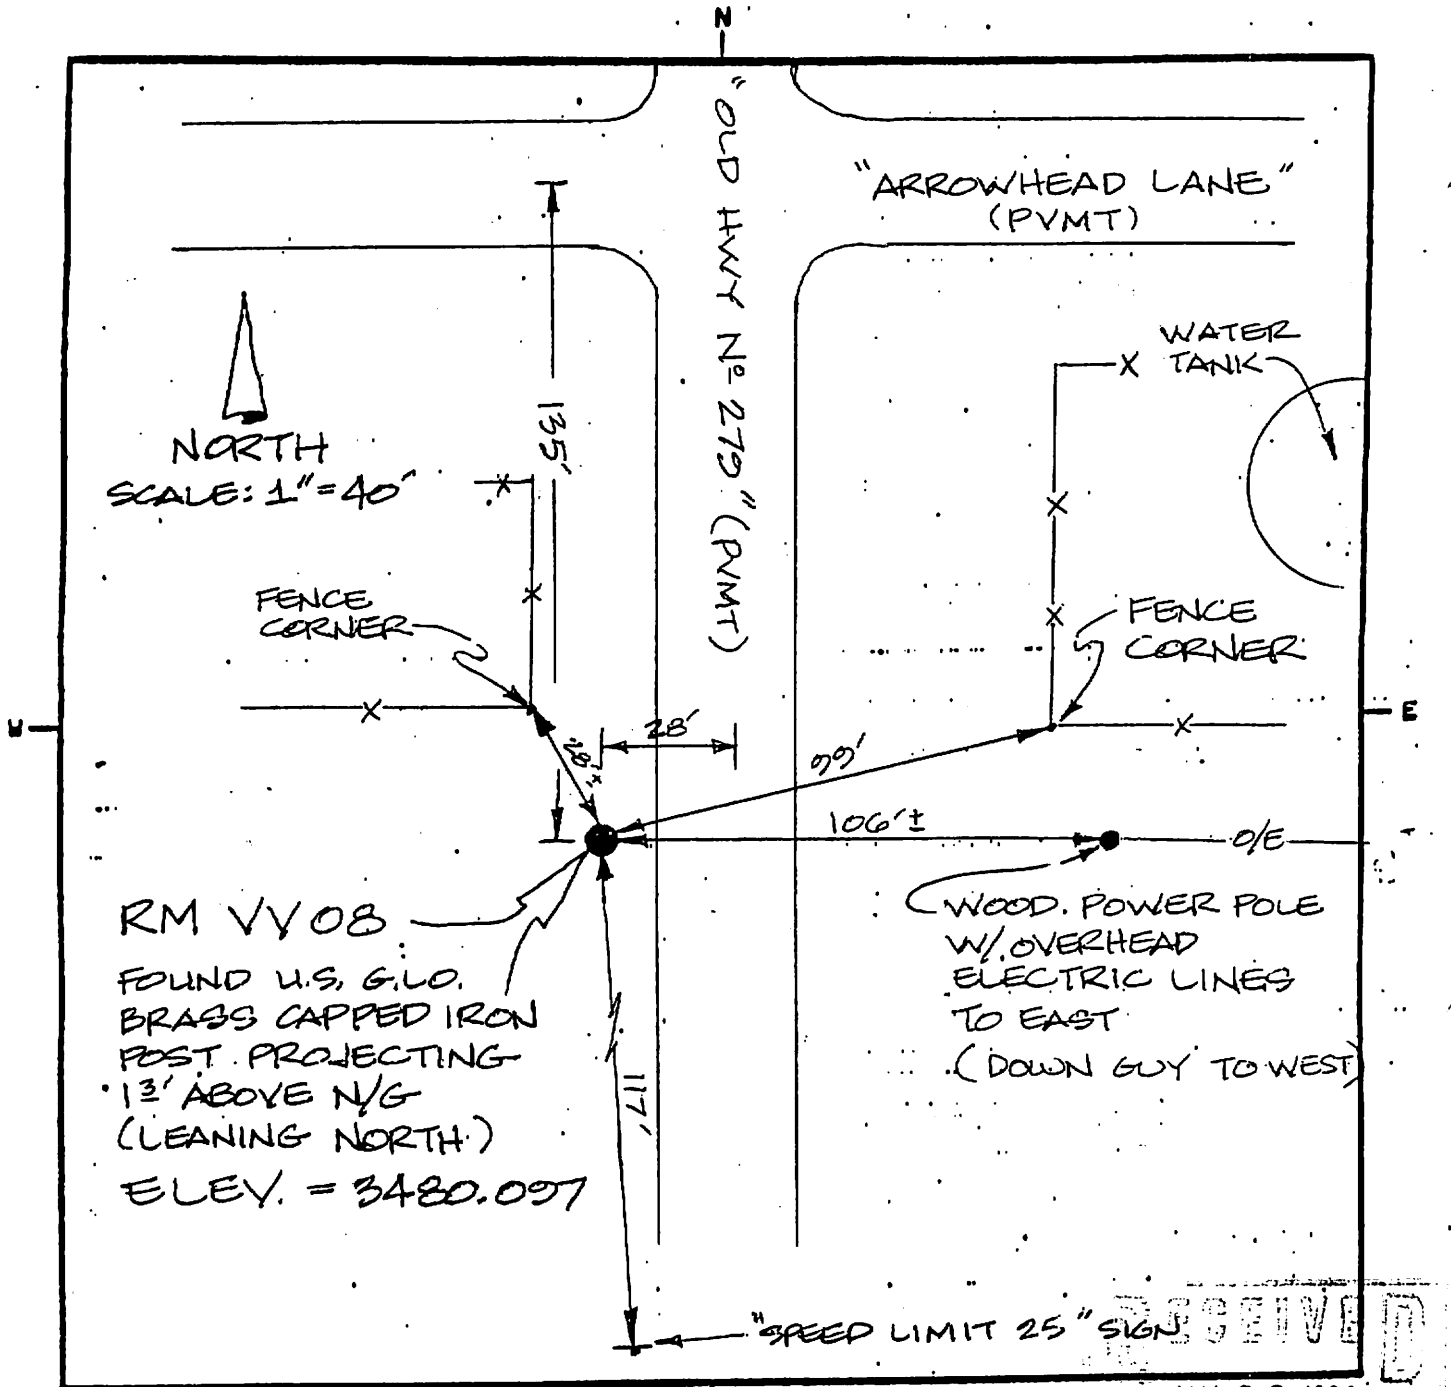 N
"OLD HWY Nº 279" (PVMT)
"ARROWHEAD LANE"
(PVMT)
WATER
TANK
X
135'
NORTH
SCALE: 1"=40'
X
X
X
FENCE
CORNER
X
FENCE
CORNER
W
E
X
X
28'
99'
106'±
O/E
RM VV08
FOUND U.S. G.L.O.
BRASS CAPPED IRON
POST PROJECTING
1³' ABOVE N/G
(LEANING NORTH)
ELEV. = 3480.097
WOOD POWER POLE
W/ OVERHEAD
ELECTRIC LINES
TO EAST
(DOWN GUY TO WEST)
117'
"SPEED LIMIT 25" SIGN
RECEIVED